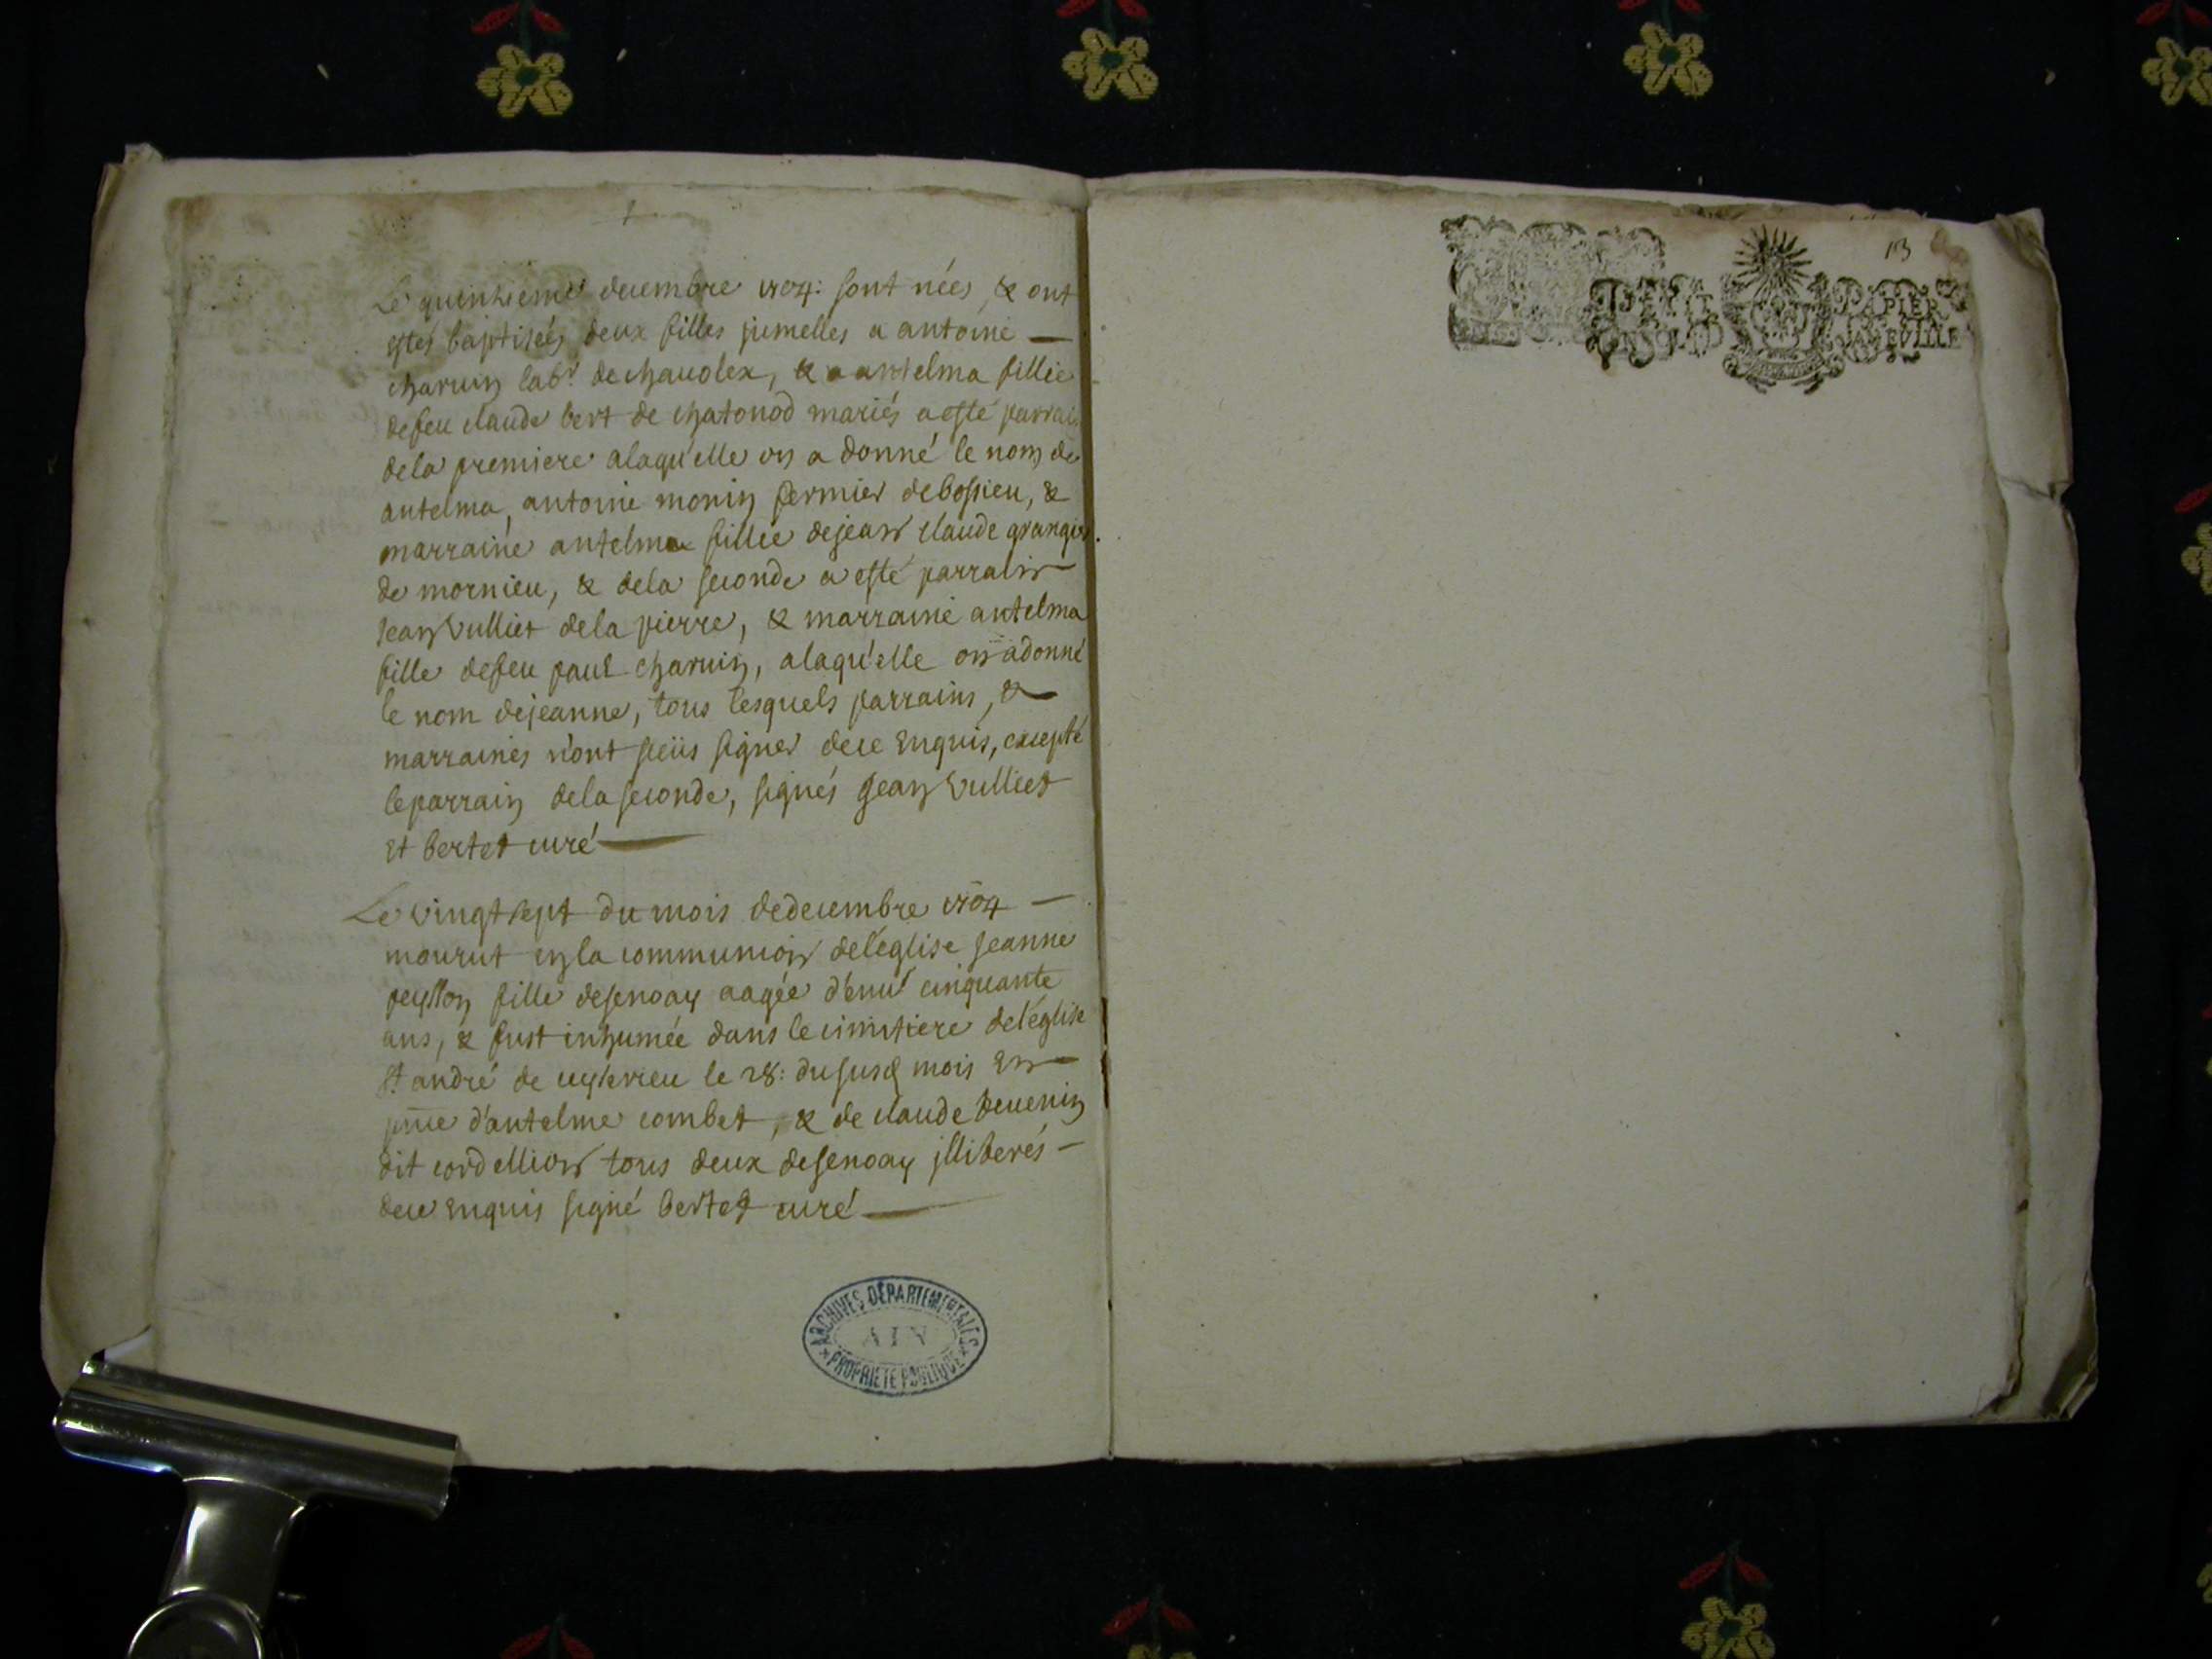 Le quinzieme decembre 1704: sont nées, & ont
estes baptisées deux filles jumelles a antoine —
charuin labr. de chauolex, & a antelma fillie
defeu claude bert de chatonod mariés a esté parrain
dela premiere alaqu'elle on a donné le nom de
antelma, antoine monin fermier debossieu, &
marraine antelma fillie dejean claude grangier.
de mornieu, & dela seconde a esté parrain
Jean Vulliet dela pierre, & marraine antelma
fille defeu paul charuin, alaqu'elle on adonné
le nom dejeanne, tous lesquels parrains, &
marraines n'ont sceüs signer dece Enquis, excepté
leparrain dela seconde, signés Jean Vulliet
Et bertet curé
Le vingtsept du mois dedecembre 1704 —
mourut en la communion del'eglise Jeanne
peysson fille desenoay aagée d'enui cinquante
ans, & fust inhumée dans le cimitiere del'église
st. andré de ceyzerieu le 28: du susd mois En
pñce d'antelme combet, & de claude Deuenin
dit cordellion tous deux desenoay jlliterés —
dece Enquis signé bertet curé
ARCHIVES DÉPARTEMENTALES
AIN
PROPRIÉTÉ PUBLIQUE
13
PAPIER